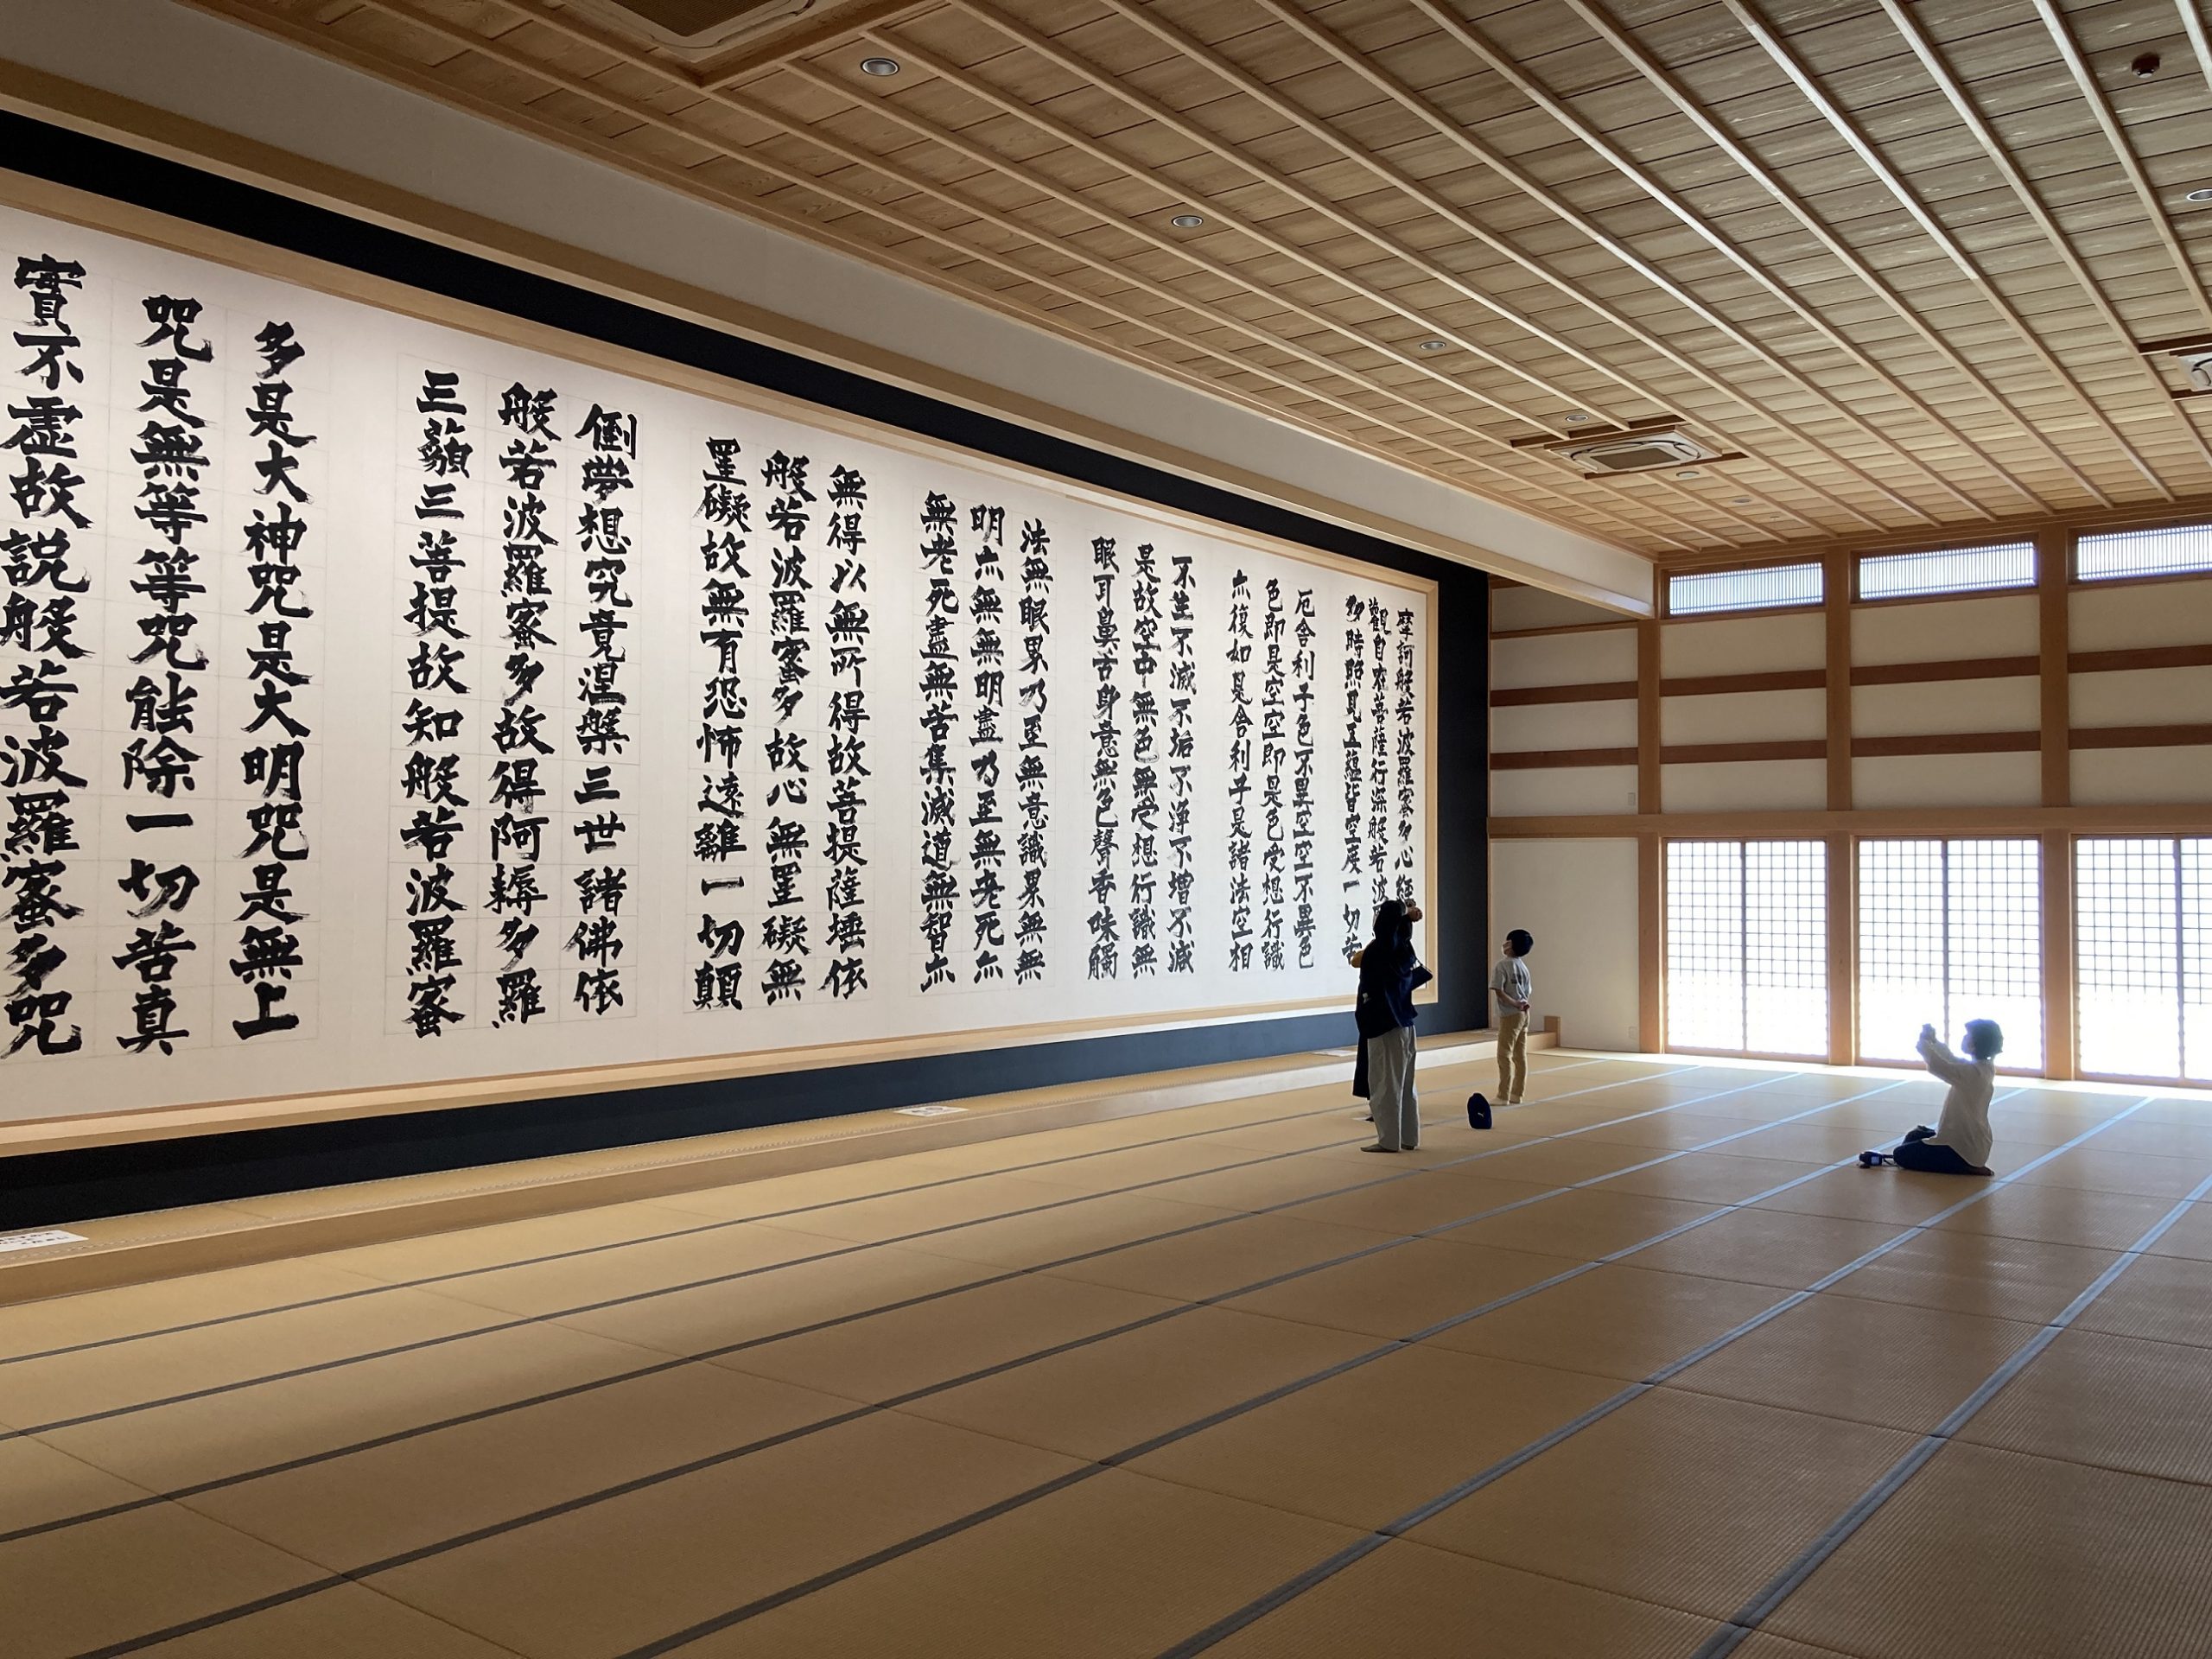 摩訶般若波羅蜜多心經
觀自在菩薩行深般若波
多時照見五蘊皆空度一切苦
厄舎利子色不異空空不異色
色即是空空即是色受想行識
亦復如是舎利子是諸法空相
不生不滅不垢不浄不増不減
是故空中無色無受想行識無
眼耳鼻舌身意無色聲香味觸
法無眼界乃至無意識界無無
明亦無無明盡乃至無老死亦
無老死盡無苦集滅道無智亦
無得以無所得故菩提薩埵依
般若波羅蜜多故心無罣礙無
罣礙故無有恐怖遠離一切顛
倒夢想究竟涅槃三世諸佛依
般若波羅蜜多故得阿耨多羅
三藐三菩提故知般若波羅蜜
多是大神呪是大明呪是無上
呪是無等等呪能除一切苦真
實不虚故説般若波羅蜜多呪